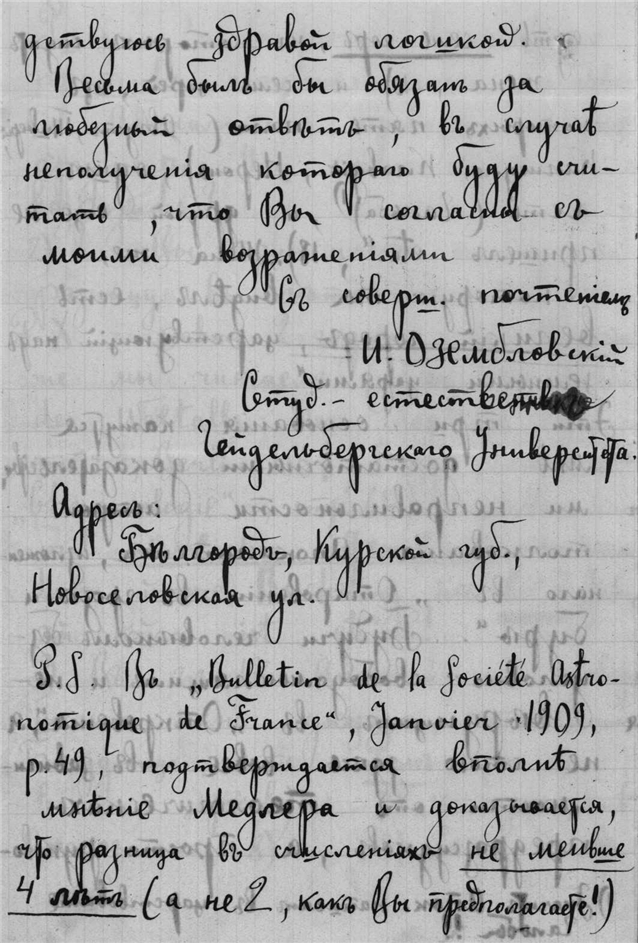 дствуюсь здравой логикой.
Весьма былъ бы обязанъ за
любезный отвѣтъ, въ случаѣ
неполученія котораго буду счи-
тать, что Вы согласны съ
моими возраженіями
Съ соверш. почтеніемъ
И. Ожембловскій
Студ. - естественникъ
Гейдельбергскаго Университета.
Адресъ:
Бѣлгородъ, Курской губ.,
Новоселовская ул.
P.S. Въ „Bulletin de la Société Astro-
nomique de France“, Janvier 1909,
p. 49, подтверждается вполнѣ
мнѣніе Медлера и доказывается,
что разница въ счисленіяхъ не менѣе
4 лѣтъ (а не 2, какъ Вы предполагаете!)